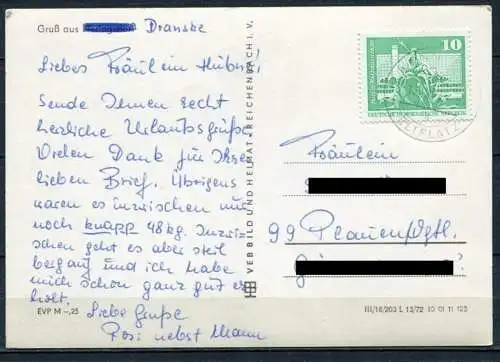 Gruß aus Dranske
Liebes Fräulein Hübner!
Sende Ihnen recht
herzliche Urlaubsgrüße.
Vielen Dank für Ihren
lieben Brief. Übrigens
waren es inzwischen nur
noch knapp 48 kg. Inzwi-
schen geht es aber steil
bergauf und ich habe
mich schon ganz gut er-
holt.
Liebe Grüße
Rosi nebst Mann
EVP M -,25
VEB BILD UND HEIMAT REICHENBACH I. V.
10
DEUTSCHE DEMOKRATISCHE REPUBLIK
ZELTPLATZ
Fräulein
99 Plauen/Vgtl.
III/18/203 L 13/72 10 01 11 123